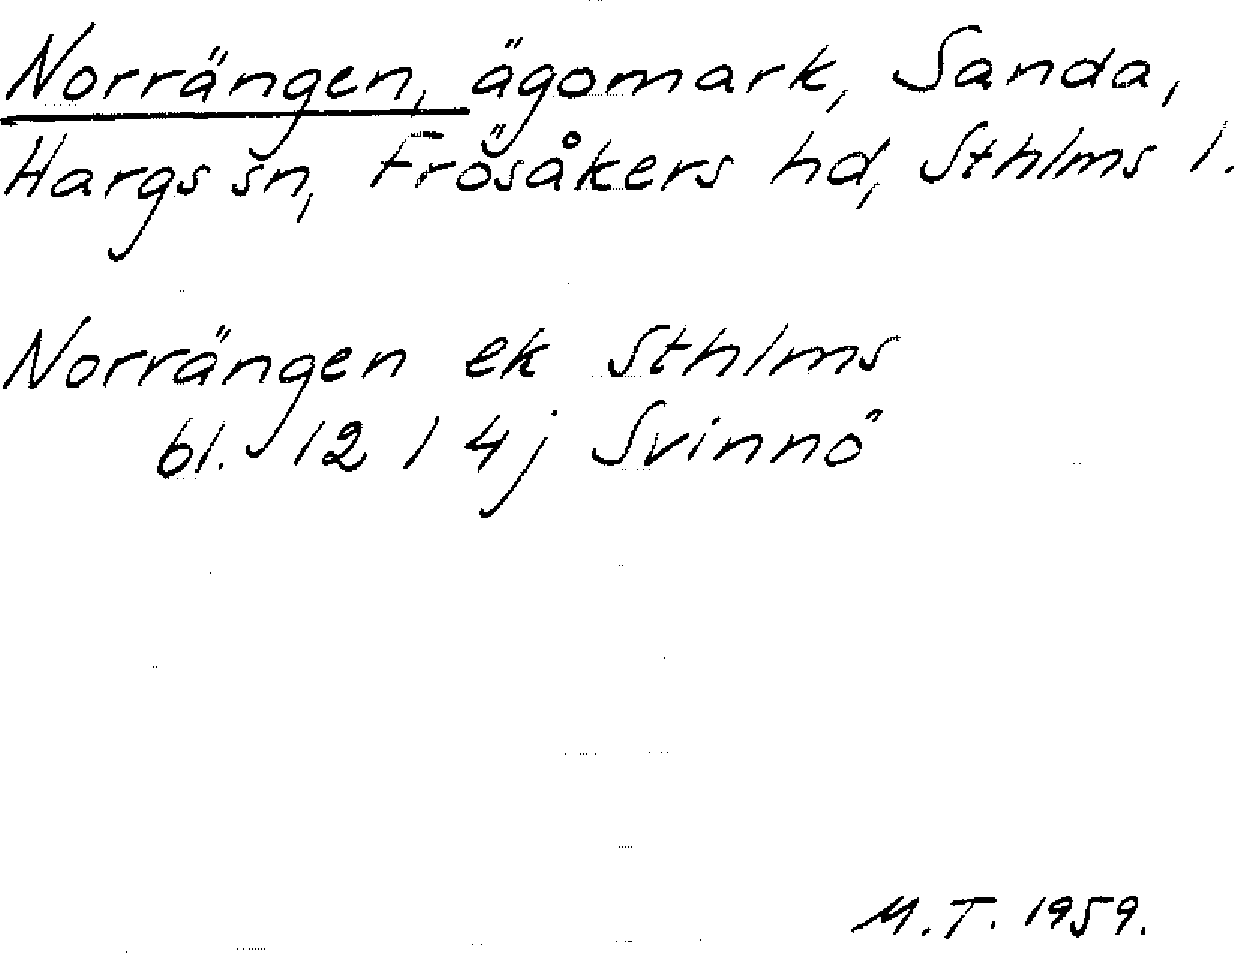 Norrängen, ägomark, Sanda,
Hargs sn, Frösåkers hd, Sthlms l.
Norrängen ek Sthlms
bl. 12 I 4j Svinnö
M.T. 1959.